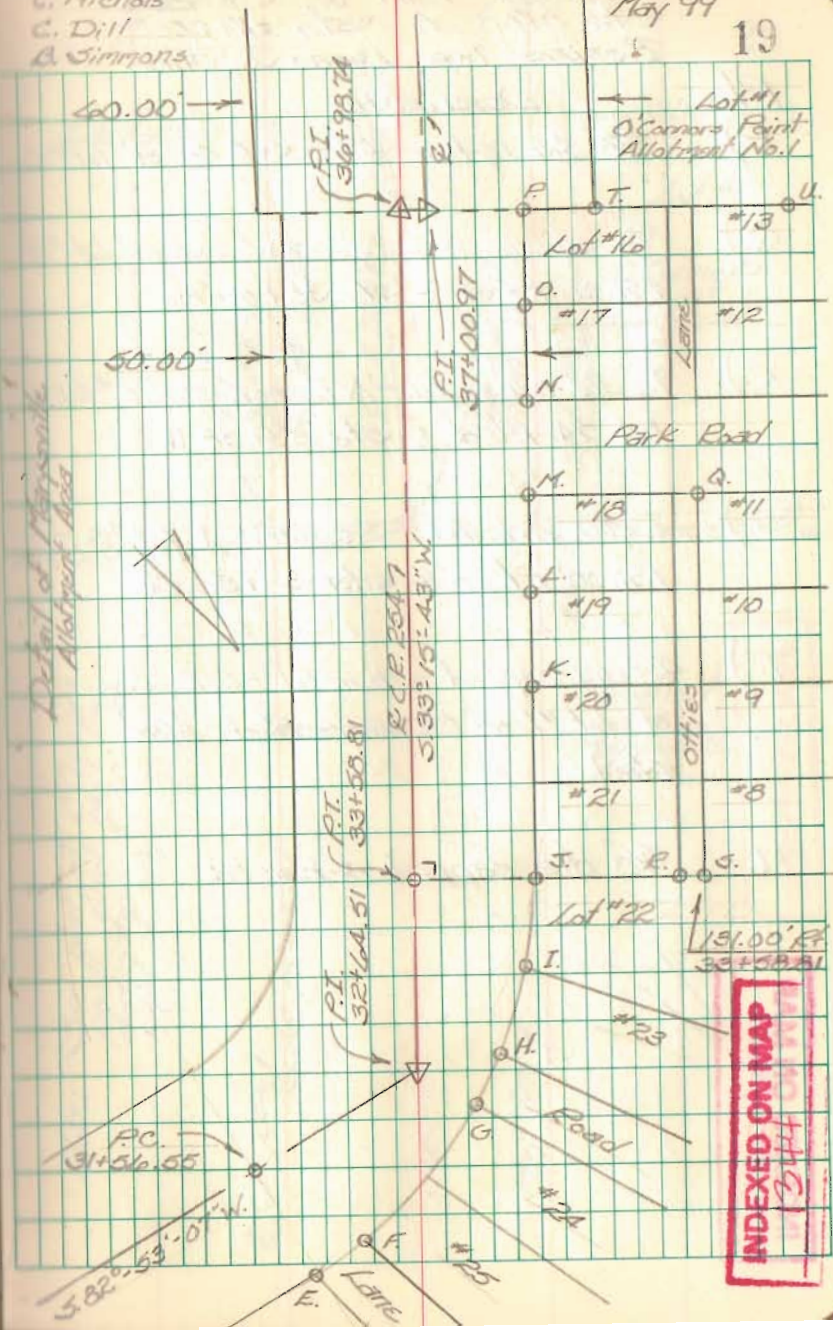 C. Nichols
C. Dill
B. Simmons
May 44
19
60.00'
P.I.
36+98.74
Lot #1
O'Connors Point
Allotment No. 1
P.
T.
U.
#13
Lot #16
O.
#17
Lane
#12
P.I.
37+00.97
50.00'
N.
Park Road
Detail of
Allotment Area
M.
#18
Q.
#11
L.
#19
#10
S.33°-15'-43"W.
K.
#20
#9
#21
#8
P.T.
33+58.81
J.
R.
S.
Lot #22
131.00' Rt
33+58.81
P.I.
32+64.51
I.
#23
H.
Road
G.
#24
P.C.
31+56.55
S.82°-53'-07"W.
F.
#25
E.
Lane
INDEXED ON MAP
1344